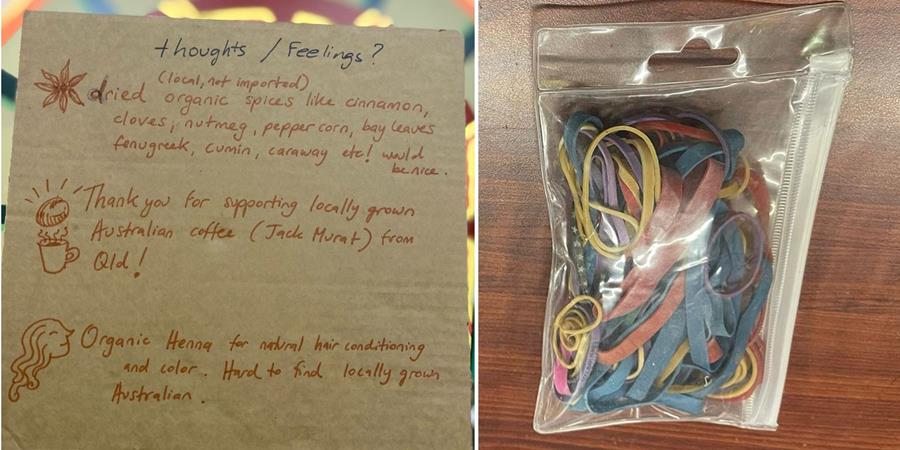 thoughts / Feelings?
(local, not imported)
dried organic spices like cinnamon,
cloves, nutmeg, pepper corn, bay leaves
fenugreek, cumin, caraway etc! would
be nice.
Thank you for supporting locally grown
Australian coffee (Jack Murat) from
Qld!
Organic Henna for natural hair conditioning
and color. Hard to find locally grown
Australian.